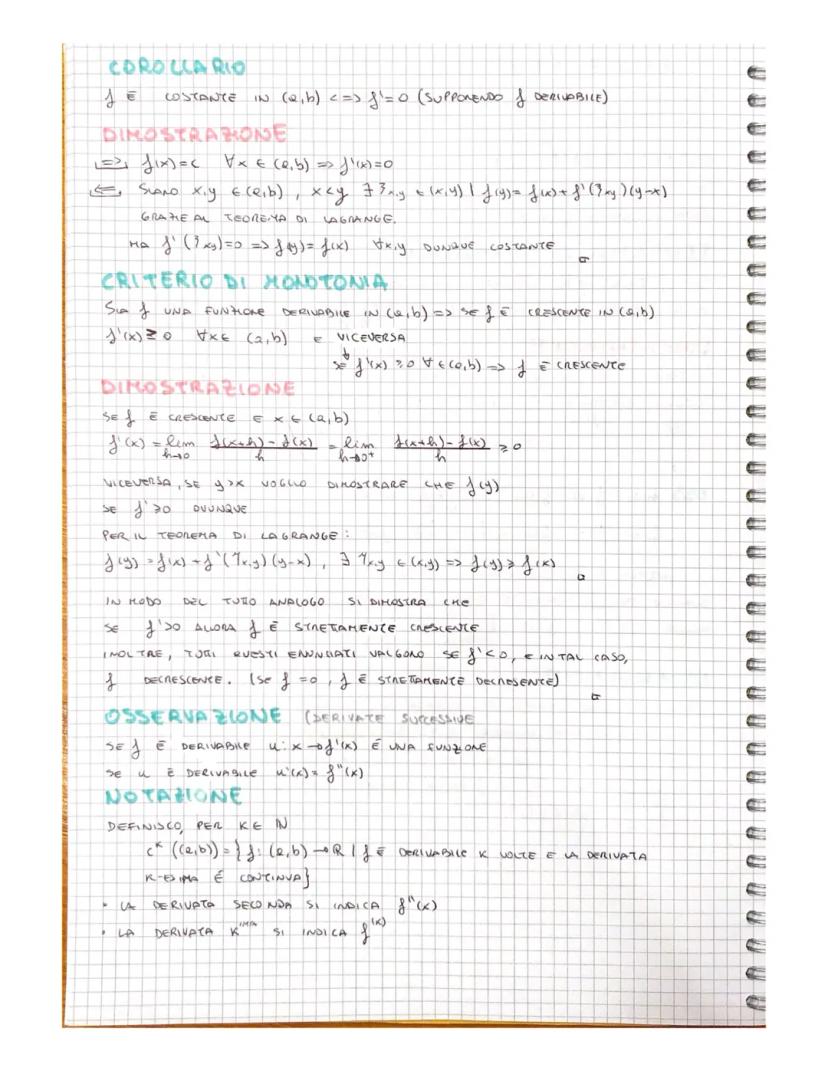 COROLLARIO
f È COSTANTE IN (a,b) <=> f'=0 (SUPPONENDO f DERIVABILE)
DIMOSTRAZIONE
|=>| f(x)=c ∀x ∈ (a,b) => f'(x)=0
|<=| SIANO x,y ∈ (a,b), x<y ∃ ξx,y ∈ (x,y) | f(y)= f(x)+ f'(ξxy)(y-x)
GRAZIE AL TEOREMA DI LAGRANGE.
MA f'(ξxy)=0 => f(y)= f(x) ∀x,y DUNQUE COSTANTE □
CRITERIO DI MONOTONIA
SIA f UNA FUNZIONE DERIVABILE IN (a,b) => SE f È CRESCENTE IN (a,b)
f'(x) ≥ 0 ∀x ∈ (a,b) E VICEVERSA
↓
SE f'(x) ≥0 ∀ ∈ (a,b) => f È CRESCENTE
DIMOSTRAZIONE
SE f È CRESCENTE E x ∈ (a,b)
f'(x) = lim h→0 f(x+h) - f(x) / h = lim h→0+ f(x+h) - f(x) / h ≥ 0
VICEVERSA, SE y>x VOGLIO DIMOSTRARE CHE f(y)
SE f' ≥0 OVUNQUE
PER IL TEOREMA DI LAGRANGE:
f(y) = f(x) + f'(ηx,y)(y-x), ∃ ηx,y ∈ (x,y) => f(y) ≥ f(x) □
IN MODO DEL TUTTO ANALOGO SI DIMOSTRA CHE
SE f'>0 ALLORA f È STRETTAMENTE CRESCENTE
INOLTRE, TUTTI QUESTI ENUNCIATI VALGONO SE f'<0, E IN TAL CASO,
f DECRESCENTE. (SE f =0, f È STRETTAMENTE DECRESENTE) □
OSSERVAZIONE (DERIVATE SUCCESSIVE
SE f È DERIVABILE u: x → f'(x) È UNA FUNZIONE
SE u È DERIVABILE u'(x) = f"(x)
NOTAZIONE
DEFINISCO, PER K ∈ N
C^K ((a,b)) = { f: (a,b) → R | f È DERIVABILE K VOLTE E LA DERIVATA
K-ESIMA È CONTINUA}
• LA DERIVATA SECONDA SI INDICA f"(x)
• LA DERIVATA K^IMA SI INDICA f^(K)